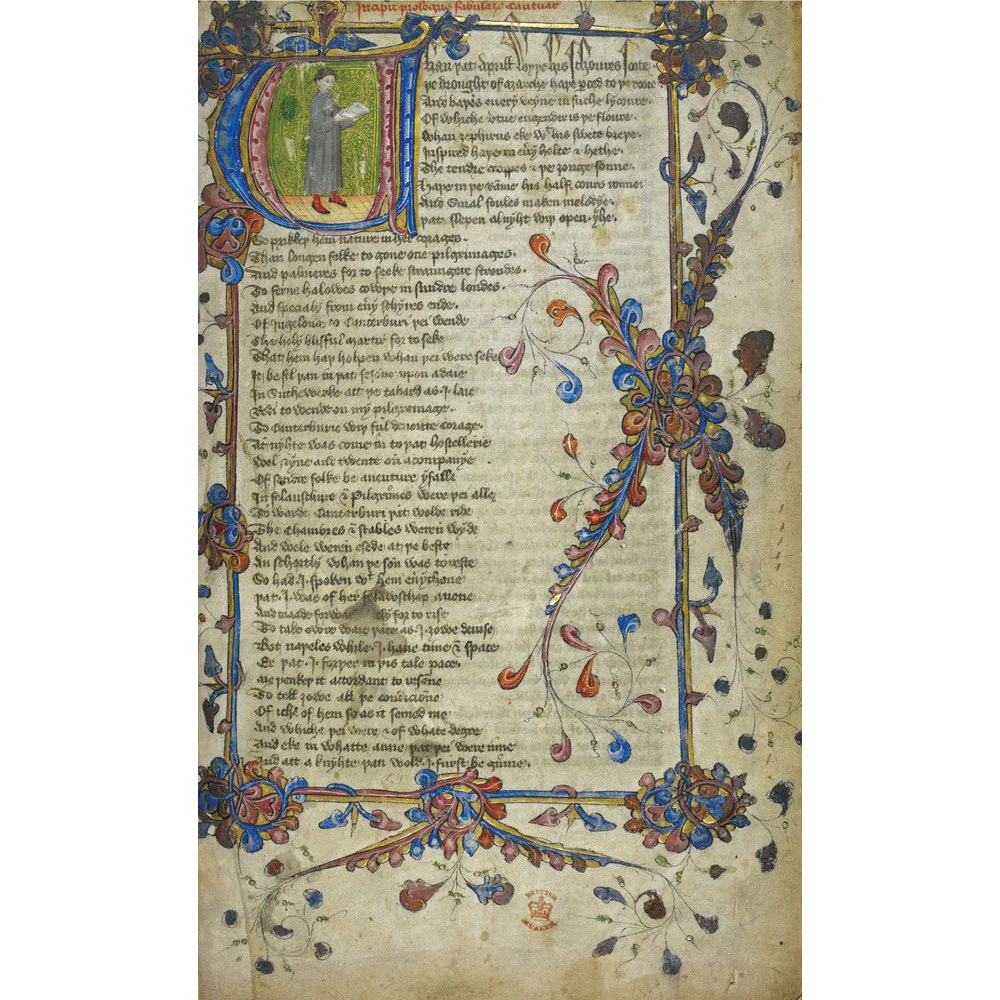 Incipit prologus fabularum Cantuar
Whan þat Aprill wyþ his schoures soote
þe drought of marche haþe perced to þe roote
And baþes euery veyne in suche lycoure
Of whiche vertue engendred is þe floure
Whan zephirus eke wt his swete breþe
Inspired haþe in euy holte & hethe
The tendre croppes & þe zonge sonne
Haþe in þe Rame his half cours ronne
And Smal foules maken melodye
þat slepen al nyht wiþ open yhe
So prikkeþ hem nature in her corages
Than longen folke to gone one pilgrimages
And palmeres for to seeke straungeir strondes
To ferne halowes cowþe in sundre londes
And specialy from euy schyres ende
Of Ingelond to Canterburi þei wende
The holy blisful martir for to seke
That hem haþ holpen whan þei were seke
It befil þan in þat sesone vpon a daie
In SutheWerke att þe tabard as I laie
Redi to wende on my pilgremage
To Canterburie wiþ ful deuoute corage
At nyhte was come in to þat hostellerie
Wel nyne and twente on a companye
Of sondir folke be auenture yfalle
In felauschipe & Pilgrimes were þei alle
To warde Canterburi þat wolde ride
The Chambres & stables weren wyde
And wele weren esede at þe beste
An schortly whan þe son was to reste
So had I spoken wt hem euythone
þat I was of her felawschap anone
And maade forwar ely for to rise
To take owre waie þare as I zowe deuise
Bot naþeles while I haue time & space
Er þat I forþer in þis tale pace
Me þenkeþ it accordant to resone
To tell zowe all þe condicione
Of iche of hem so as it semed me
And whiche þei were & of whate degre
And eke in whatte araie þat þei were inne
And att a knyhte þan wold I furst be ginne
BRITISH
MUSEUM